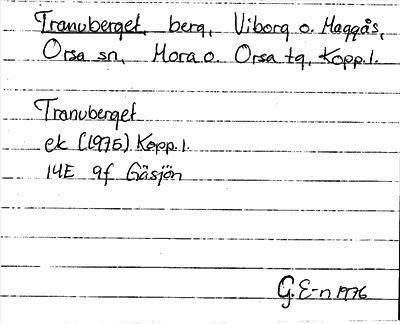 Tranuberget, berg, Viborg o. Maggås,
Orsa sn, Mora o. Orsa tg, Kopp. l.
Tranuberget
ek (1975) Kopp. l.
14E 9f Gåsjön
G. E-n 1976